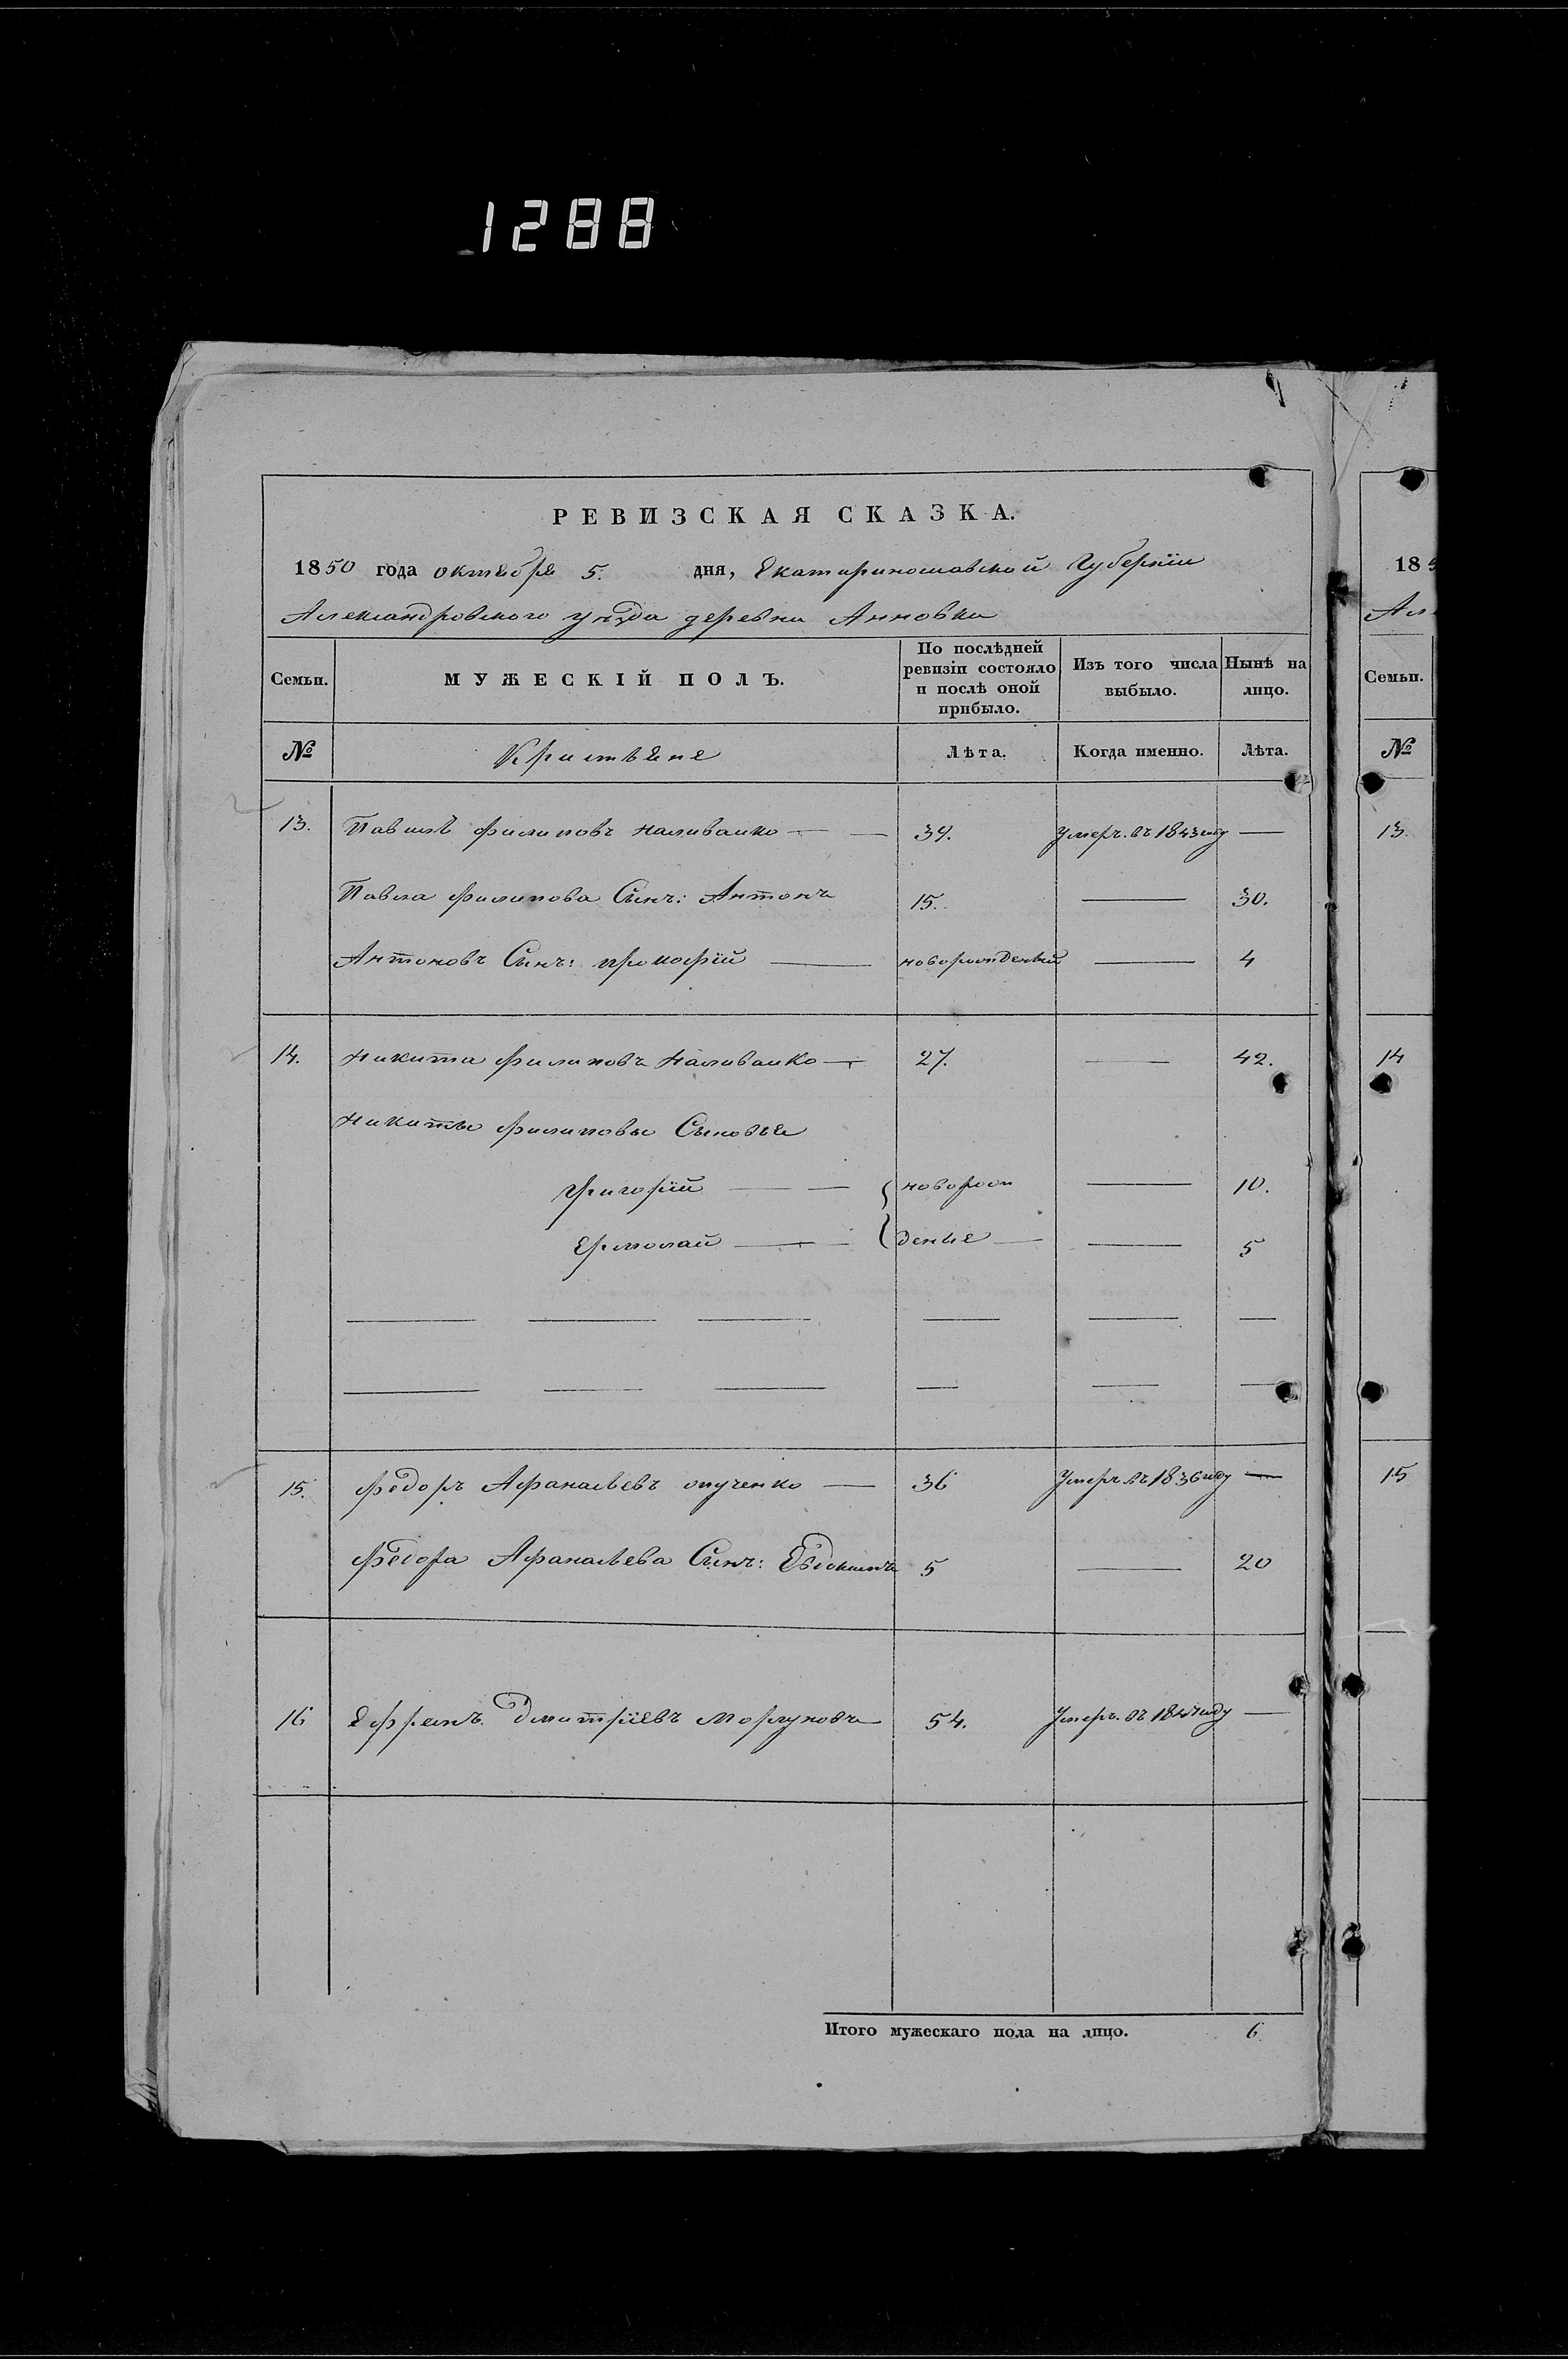 1288
РЕВИЗСКАЯ СКАЗКА.
1850 года октября 5. дня, Екатеринославской Губерніи
Александровского уезда деревни Анновки
Семьи. МУЖЕСКІЙ ПОЛЪ. По послѣдней ревизіи состояло и послѣ оной прибыло. Изъ того числа выбыло. Нынѣ на лицо.
№ Кристьяне Лѣта. Когда именно. Лѣта.
13. Павелъ Филиповъ Наливайко — — 39. умеръ. въ 1843 году —
Павла Филипова Сынъ: Антонъ 15. — 30.
Антоновъ Сынъ: Прокофій — новорожденый — 4
14. Никита Филиповъ Наливайко — 27. — 42.
Никиты Филиповы Сыновья
Григорій — — новорож — 10.
Ермолай — — деные — — 5
15. Федоръ Афанасьевъ — 36 умеръ въ 1836 году —
Федора Афанасьева Сынъ: Евдокимъ 5 — 20
16 Ефремъ. Дмитріевъ Моргуновъ 54. умеръ. въ году —
Итого мужескаго пола на лицо. 6
18 5
Ал
Семьи.
№
13.
14
15